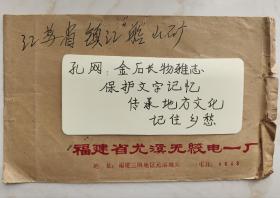 江苏省镇江韦山矿
孔网：金石长物雅志
保护文字记忆
传承地方文化
记住乡愁
福建省尤溪无线电一厂
地址：福建三明地区尤溪城关